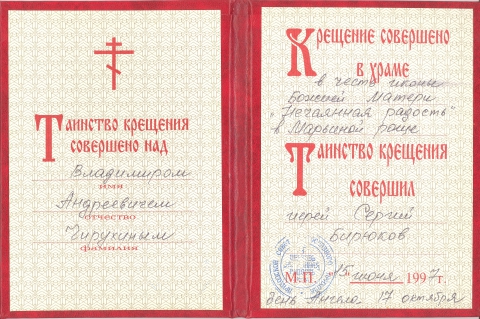 Таинство крещения
совершено над
Владимиром
имя
Андреевичем
отчество
Чирухиным
фамилия
Крещение совершено
в храме
в честь иконы
Божией Матери
"Нечаянная радость"
в Марьиной роще
Таинство крещения
совершил
иерей Сергий
Бирюков
М.П. "15" июня 1997г.
день Ангела 17 октября